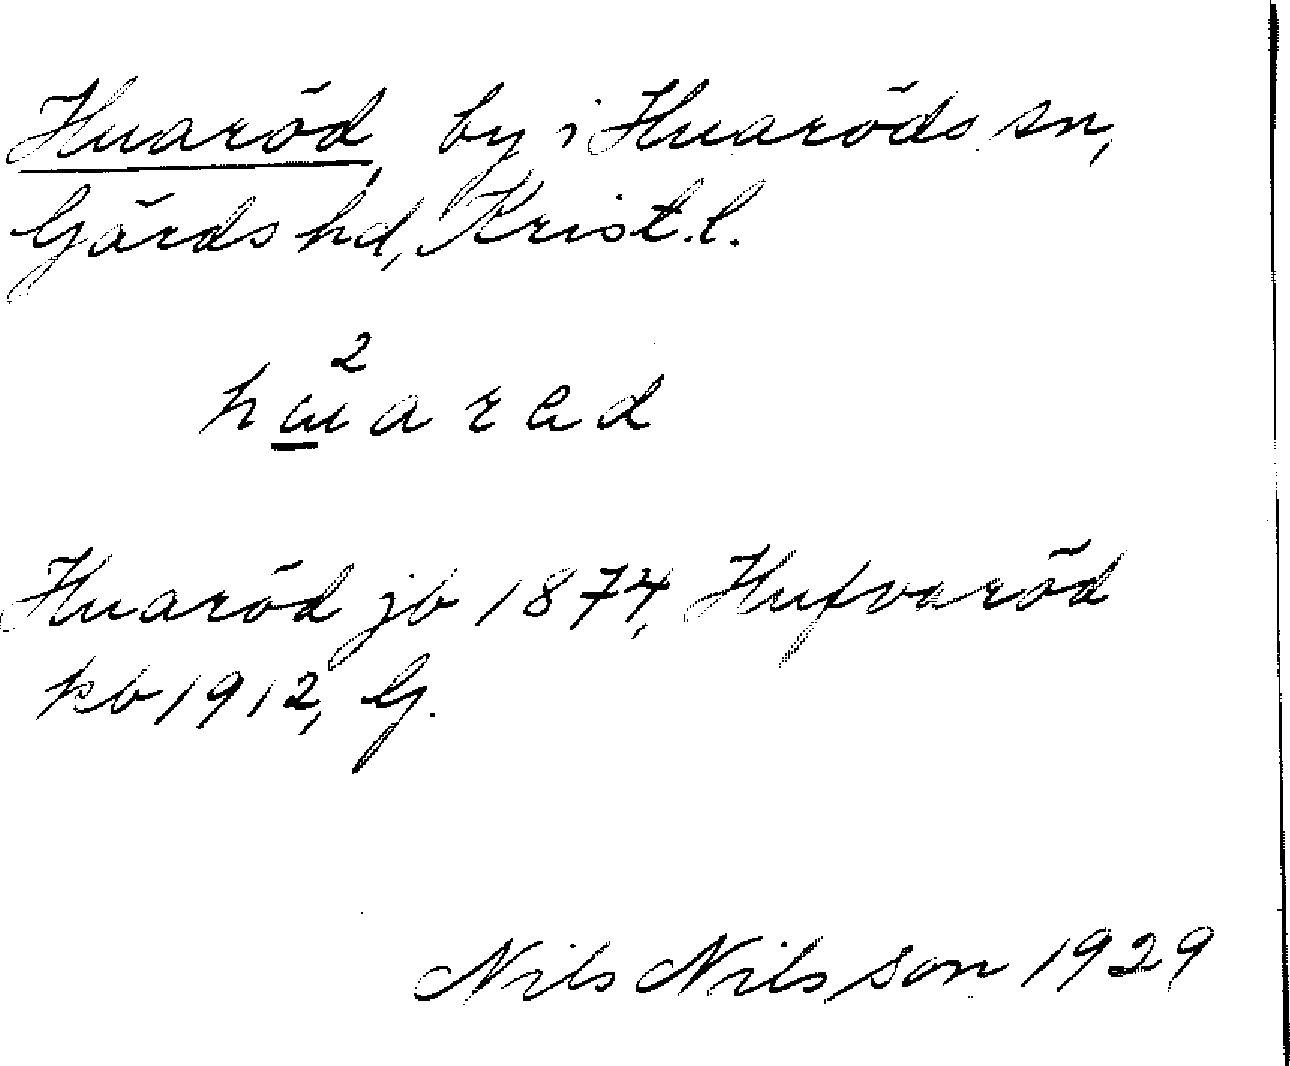 Huaröd, by i Huaröds sn,
Gärds hd, Krist.l.
Huaröd jb 1874, Hufvaröd
kb 1912, G.
Nils Nilsson 1929